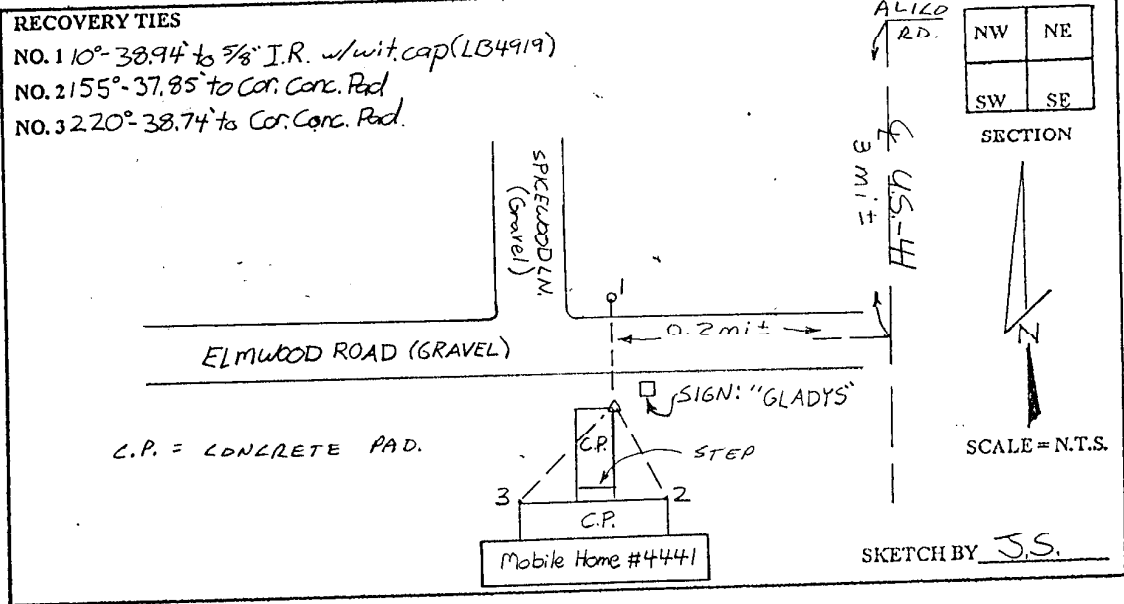 RECOVERY TIES
NO. 1 10°-38.94' to 5/8" I.R. w/wit. cap (LB4919)
NO. 2 155°-37.85' to Cor. Conc. Pad
NO. 3 220°-38.74' to Cor. Conc. Pad.
ALICO
RD.
NW NE
SW SE
SECTION
SPICEWOOD LN.
(Gravel)
℄ U.S.-41
3 mi ±
1
0.2 mi ±
ELMWOOD ROAD (GRAVEL)
N
SIGN: "GLADYS"
C.P. = CONCRETE PAD.
C.P.
STEP
SCALE = N.T.S.
3
2
C.P.
Mobile Home #4441
SKETCH BY J.S.